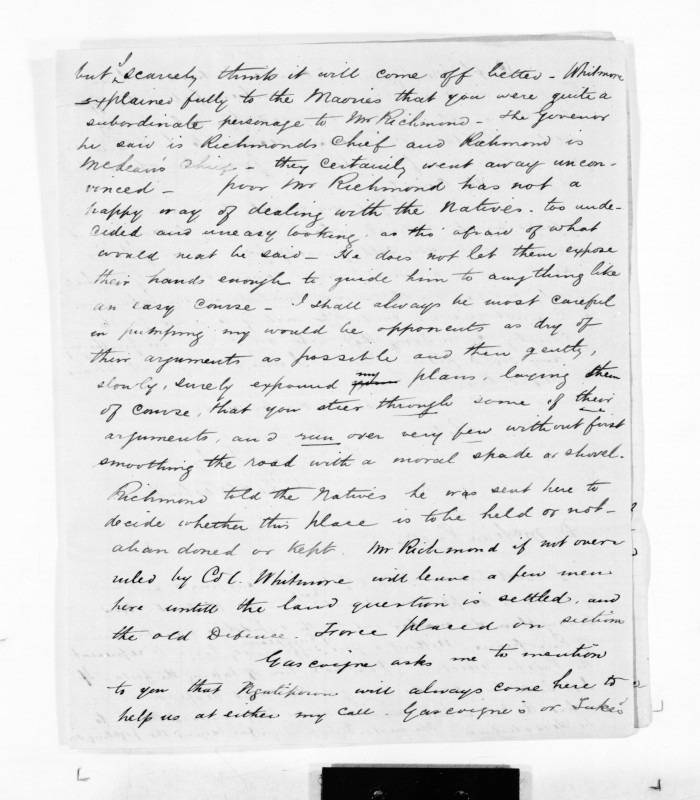 but I scarcely think it will come off better - Whitmore
explained fully to the Maories that you were quite a
subordinate personage to Mr Richmond - The Govenor
he said is Richmonds Chief and Richmond is
McLean's Chief - they certainly went away uncon-
vinced - poor Mr Richmond has not a
happy way of dealing with the Natives. too unde-
cided and uneasy looking. as tho' afraid of what
would next be said - He does not let them expose
their hands enough to guide him to anything like
an easy course - I shall always be most careful
in pumping my would be opponents as dry of
their arguments as possible and then gently,
slowly, surely expound my plans, laying them
of course, that you steer through some of their
arguments, and run over very few without first
smoothing the road with a moral spade or shovel.
Richmond told the Natives he was sent here to
decide whether this place is to be held or not -
abandoned or kept. Mr Richmond if not over-
ruled by Col. Whitmore will leave a few men
here untill the land question is settled. and
the old Defence Force placed on section
Gascoigne asks me to mention
to you that Ngatiporou will always come here to
help us at either my call. Gascoigne's or Tuke's